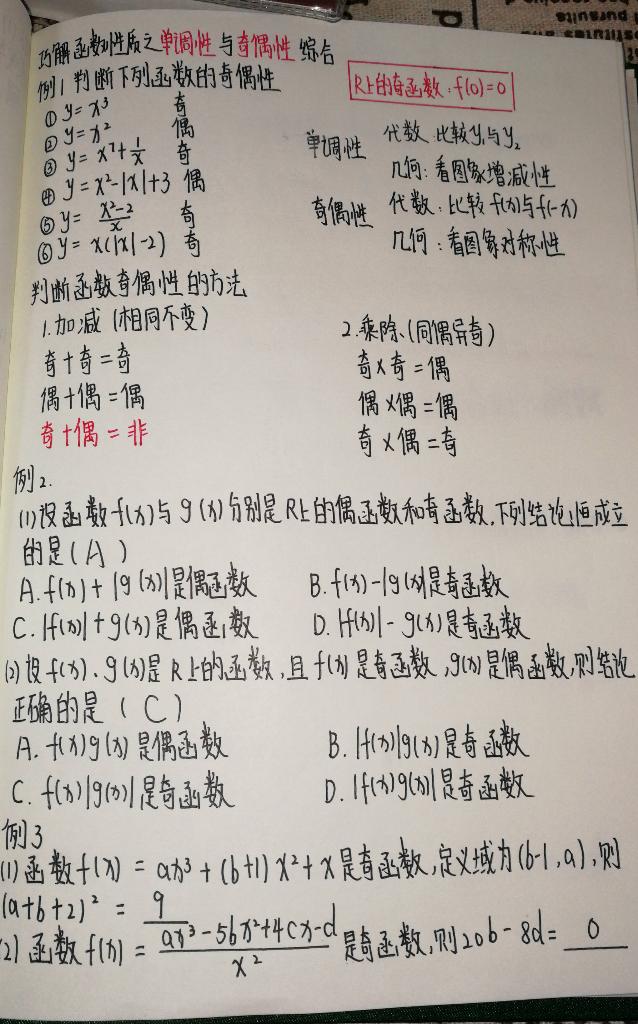 巧解函数性质之单调性与奇偶性综合
例1 判断下列函数的奇偶性
R上的奇函数：f(0)=0
① y = x³ 奇
② y = x² 偶
③ y = x⁷ + 1/x 奇
④ y = x²-|x|+3 偶
⑤ y = (x²-2)/x 奇
⑥ y = x(|x|-2) 奇
单调性 代数：比较y₁与y₂
几何：看图象增减性
奇偶性 代数：比较f(x)与f(-x)
几何：看图象对称性
判断函数奇偶性的方法
1.加减（相同不变）
奇+奇=奇
偶+偶=偶
奇+偶=非
2.乘除（同偶异奇）
奇×奇=偶
偶×偶=偶
奇×偶=奇
例2.
(1)设函数f(x)与g(x)分别是R上的偶函数和奇函数,下列结论恒成立
的是(A)
A.f(x)+|g(x)|是偶函数 B.f(x)-|g(x)|是奇函数
C.|f(x)|+g(x)是偶函数 D.|f(x)|-g(x)是奇函数
(2)设f(x)、g(x)是R上的函数,且f(x)是奇函数,g(x)是偶函数,则结论
正确的是(C)
A.f(x)g(x)是偶函数 B.|f(x)|g(x)是奇函数
C.f(x)|g(x)|是奇函数 D.|f(x)g(x)|是奇函数
例3
(1)函数f(x)=ax³+(b+1)x²+x是奇函数,定义域为(b-1,a),则
(a+b+2)²= 9
(2)函数f(x)=(ax³-5bx²+4cx-d)/x² 是奇函数,则20b-8d= 0
pursuits